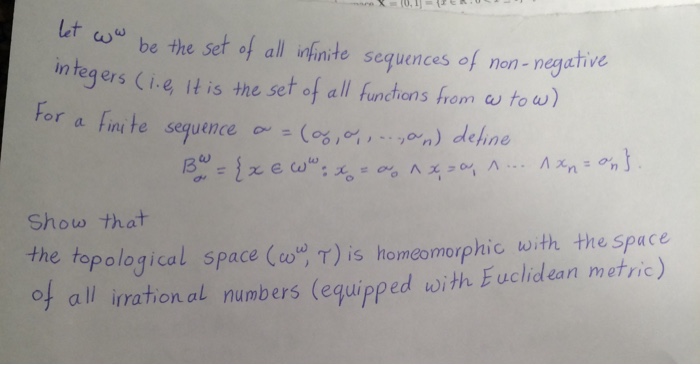 Let ω^ω be the set of all infinite sequences of non-negative
integers (i.e, It is the set of all functions from ω to ω)
For a finite sequence α = (α₀, α₁, ..., αₙ) define
B^ω_α = {x ∈ ω^ω : x₀ = α₀ ∧ x₁ = α₁ ∧ ... ∧ xₙ = αₙ}.
Show that
the topological space (ω^ω, τ) is homeomorphic with the space
of all irrational numbers (equipped with Euclidean metric)